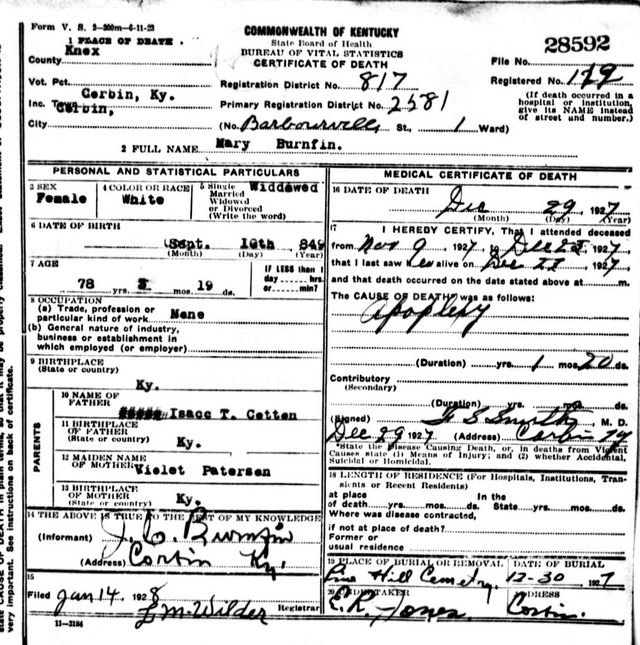 Form V. S. 2-300m-6-11-23
1 PLACE OF DEATH
COMMONWEALTH OF KENTUCKY
State Board of Health
BUREAU OF VITAL STATISTICS
CERTIFICATE OF DEATH
28592
File No.
County Knox
Vot. Pct. Corbin, Ky.
Registration District No. 817
Registered No. 119
Inc. Town Corbin,
Primary Registration District No. 2581
(If death occurred in a hospital or institution, give its NAME instead of street and number.)
City
(No. Barbourville St., 1 Ward)
2 FULL NAME Mary Burnfin.
PERSONAL AND STATISTICAL PARTICULARS
3 SEX Female
4 COLOR OR RACE White
5 Single Married Widowed or Divorced (Write the word) Widdewed
6 DATE OF BIRTH
Sept. 10th 849
(Month) (Day) (Year)
7 AGE
78 yrs. 3 mos. 19 ds.
IF LESS than 1 day hrs. or min?
8 OCCUPATION
(a) Trade, profession or particular kind of work None
(b) General nature of industry, business or establishment in which employed (or employer)
9 BIRTHPLACE
(State or country)
Ky.
PARENTS
10 NAME OF FATHER Isacc T. Cotten
11 BIRTHPLACE OF FATHER (State or country) Ky.
12 MAIDEN NAME OF MOTHER Violet Patersen
13 BIRTHPLACE OF MOTHER (State or country) Ky.
14 THE ABOVE IS TRUE TO THE BEST OF MY KNOWLEDGE
(Informant) J. C. Burnfin
(Address) Corbin Ky.
15
Filed Jan 14. 1928
L M Wilder Registrar
11-3184
MEDICAL CERTIFICATE OF DEATH
16 DATE OF DEATH
Dec 29 1927
(Month) (Day) (Year)
17 I HEREBY CERTIFY, That I attended deceased
from Nov 9 1927 to Dec 1927
that I last saw alive on Dec 1927
and that death occurred on the date stated above at m.
The CAUSE OF DEATH was as follows:
Apoplexy
(Duration) yrs. 1 mos. 20 ds.
Contributory
(Secondary)
(Duration) yrs. mos. ds.
(Signed) F S Smith M. D.
Dec 29 1927 (Address) Corbin Ky
*State the Disease Causing Death, or, in deaths from Violent Causes state (1) Means of Injury; and (2) whether Accidental, Suicidal or Homicidal.
18 LENGTH OF RESIDENCE (For Hospitals, Institutions, Transients or Recent Residents)
at place of death yrs. mos. ds. In the State yrs. mos. ds.
Where was disease contracted,
if not at place of death?
Former or
usual residence
19 PLACE OF BURIAL OR REMOVAL DATE OF BURIAL
Pine Hill Cemetry. 12-30 1927
20 UNDERTAKER ADDRESS
E. R. Jones. Corbin.
very important. See instructions on back of certificate.